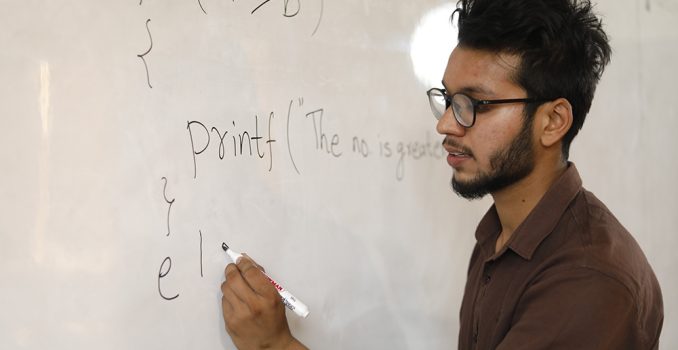 {
printf("The no. is greate
}
el